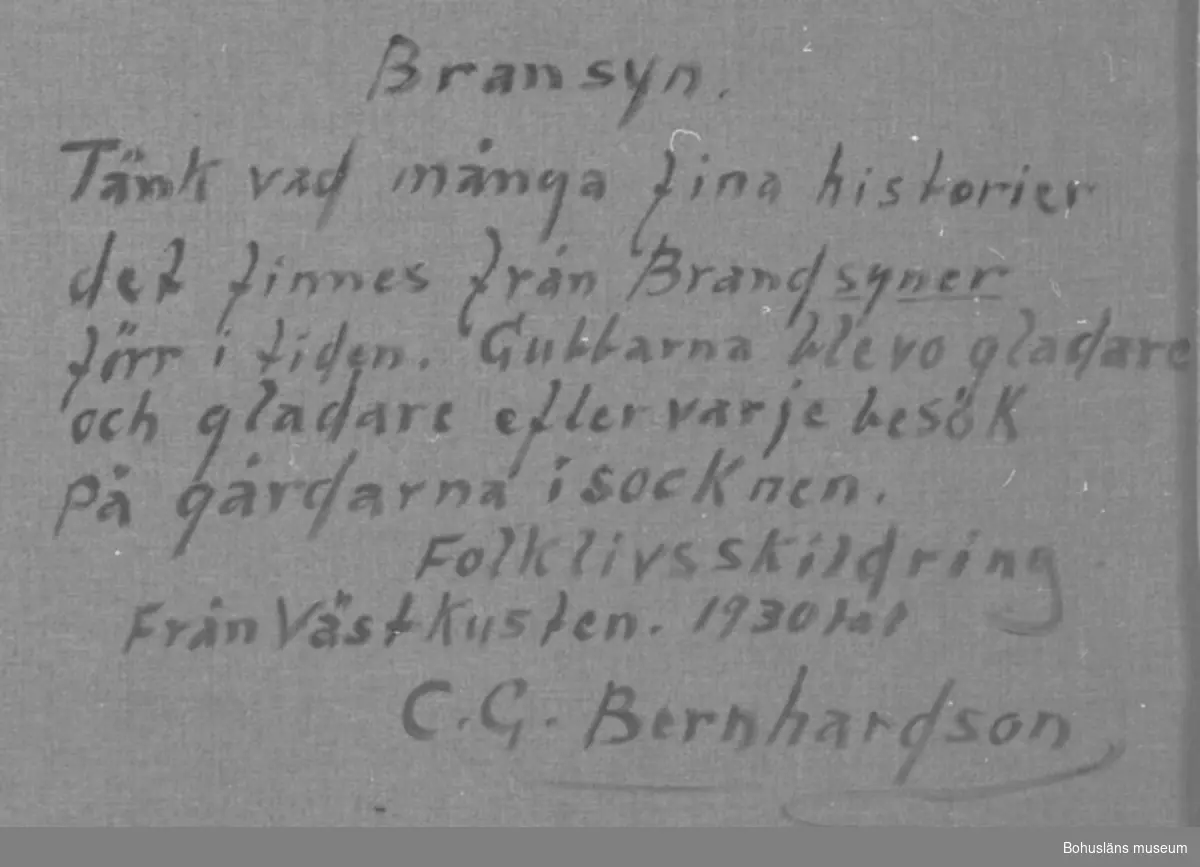 Bransyn.
Tänk vad många fina historier
det finnes från Brandsyner
förr i tiden. Gubbarna blevo gladare
och gladare efter varje besök
på gårdarna i socknen.
Folklivsskildring
Från Västkusten. 1930 tal
C.G. Bernhardson
Bohusläns museum